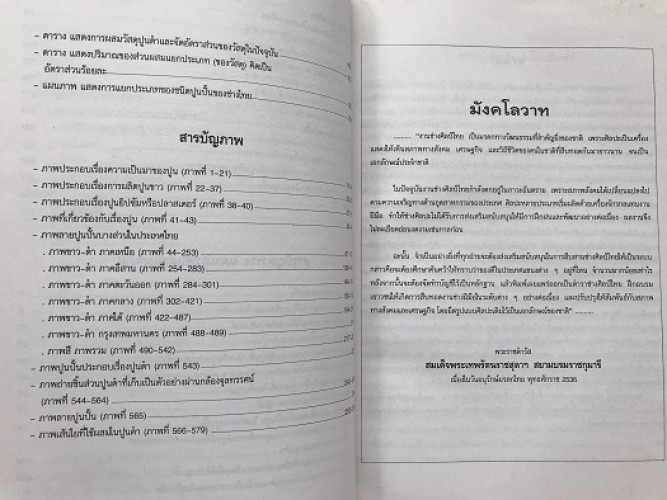 - ตาราง แสดงการผสมวัสดุปูนตำและจัดอัตราส่วนของวัสดุในปัจจุบัน
- ตาราง แสดงปริมาณของส่วนผสมแยกประเภท (ของวัสดุ) คิดเป็น
อัตราส่วนร้อยละ
- แผนภาพ แสดงการแยกประเภทของชนิดปูนปั้นของช่างไทย
สารบัญภาพ
- ภาพประกอบเรื่องความเป็นมาของปูน (ภาพที่ 1-21)
- ภาพประกอบเรื่องการผลิตปูนขาว (ภาพที่ 22-37)
- ภาพประกอบเรื่องปูนยิปซัมหรือปลาสเตอร์ (ภาพที่ 38-40)
- ภาพที่เกี่ยวข้องกับเรื่องปูน (ภาพที่ 41-43)
- ภาพลายปูนปั้นบางส่วนในประเทศไทย
. ภาพขาว-ดำ ภาคเหนือ (ภาพที่ 44-253)
. ภาพขาว-ดำ ภาคอีสาน (ภาพที่ 254-283)
. ภาพขาว-ดำ ภาคตะวันออก (ภาพที่ 284-301)
. ภาพขาว-ดำ ภาคกลาง (ภาพที่ 302-421)
. ภาพขาว-ดำ ภาคใต้ (ภาพที่ 422-487)
. ภาพขาว-ดำ กรุงเทพมหานคร (ภาพที่ 488-489)
. ภาพสี ภาพรวม (ภาพที่ 490-542)
- ภาพปูนปั้นประกอบเรื่องปูนตำ (ภาพที่ 543)
- ภาพถ่ายชิ้นส่วนปูนตำที่เก็บเป็นตัวอย่างผ่านกล้องจุลทรรศน์
(ภาพที่ 544-564)
- ภาพลายปูนปั้น (ภาพที่ 565)
- ภาพเส้นใยที่ใช้ผสมในปูนตำ (ภาพที่ 566-579)
มังคโลวาท
......... "งานช่างศิลป์ไทย เป็นมรดกทางวัฒนธรรมที่สำคัญยิ่งของชาติ เพราะศิลปะเป็นเครื่อง
แสดงให้เห็นสภาพทางสังคม เศรษฐกิจ และวิถีชีวิตของคนในชาติที่สืบทอดกันมาช้านาน จนเป็น
เอกลักษณ์ประจำชาติ
ในปัจจุบันงานช่างศิลป์ไทยกำลังตกอยู่ในภาวะอันตราย เพราะสภาพสังคมได้เปลี่ยนแปลงไป
ตามความเจริญทางด้านอุตสาหกรรมของประเทศ ศิลปะหลายประเภทเริ่มผลิตด้วยเครื่องจักรกลแทนงาน
ฝีมือ ทำให้ช่างศิลปะไม่ได้รับการส่งเสริมสนับสนุนให้มีการฝึกฝนและพัฒนาอย่างต่อเนื่อง ผลงานจึง
ไม่ละเอียดอ่อนงดงามเช่นกาลก่อน
ฉะนั้น จำเป็นอย่างยิ่งที่ทุกฝ่ายจะต้องส่งเสริมสนับสนุนในการสืบสานช่างศิลป์ไทยให้เป็นระบบ
กล่าวคือจะต้องศึกษาค้นคว้าให้ทราบว่าของดีในประเทศแขนงต่าง ๆ อยู่ที่ไหน จำนวนมากน้อยเท่าไร
หลังจากนั้นจะต้องจัดทำบัญชีไว้เป็นหลักฐาน แล้วพิมพ์เผยแพร่ออกเป็นตำราช่างศิลป์ไทย ฝึกอบรม
เยาวชนให้เกิดการสืบทอดงานช่างฝีมือในระดับต่าง ๆ อย่างต่อเนื่อง และปรับปรุงให้สัมพันธ์กับสภาพ
ทางสังคมและเศรษฐกิจ โดยยึดรูปแบบศิลปะเดิมไว้เป็นเอกลักษณ์ของชาติ" .........
พระราชดำรัส
สมเด็จพระเทพรัตนราชสุดาฯ สยามบรมราชกุมารี
เนื่องในวันอนุรักษ์มรดกไทย พุทธศักราช 2536